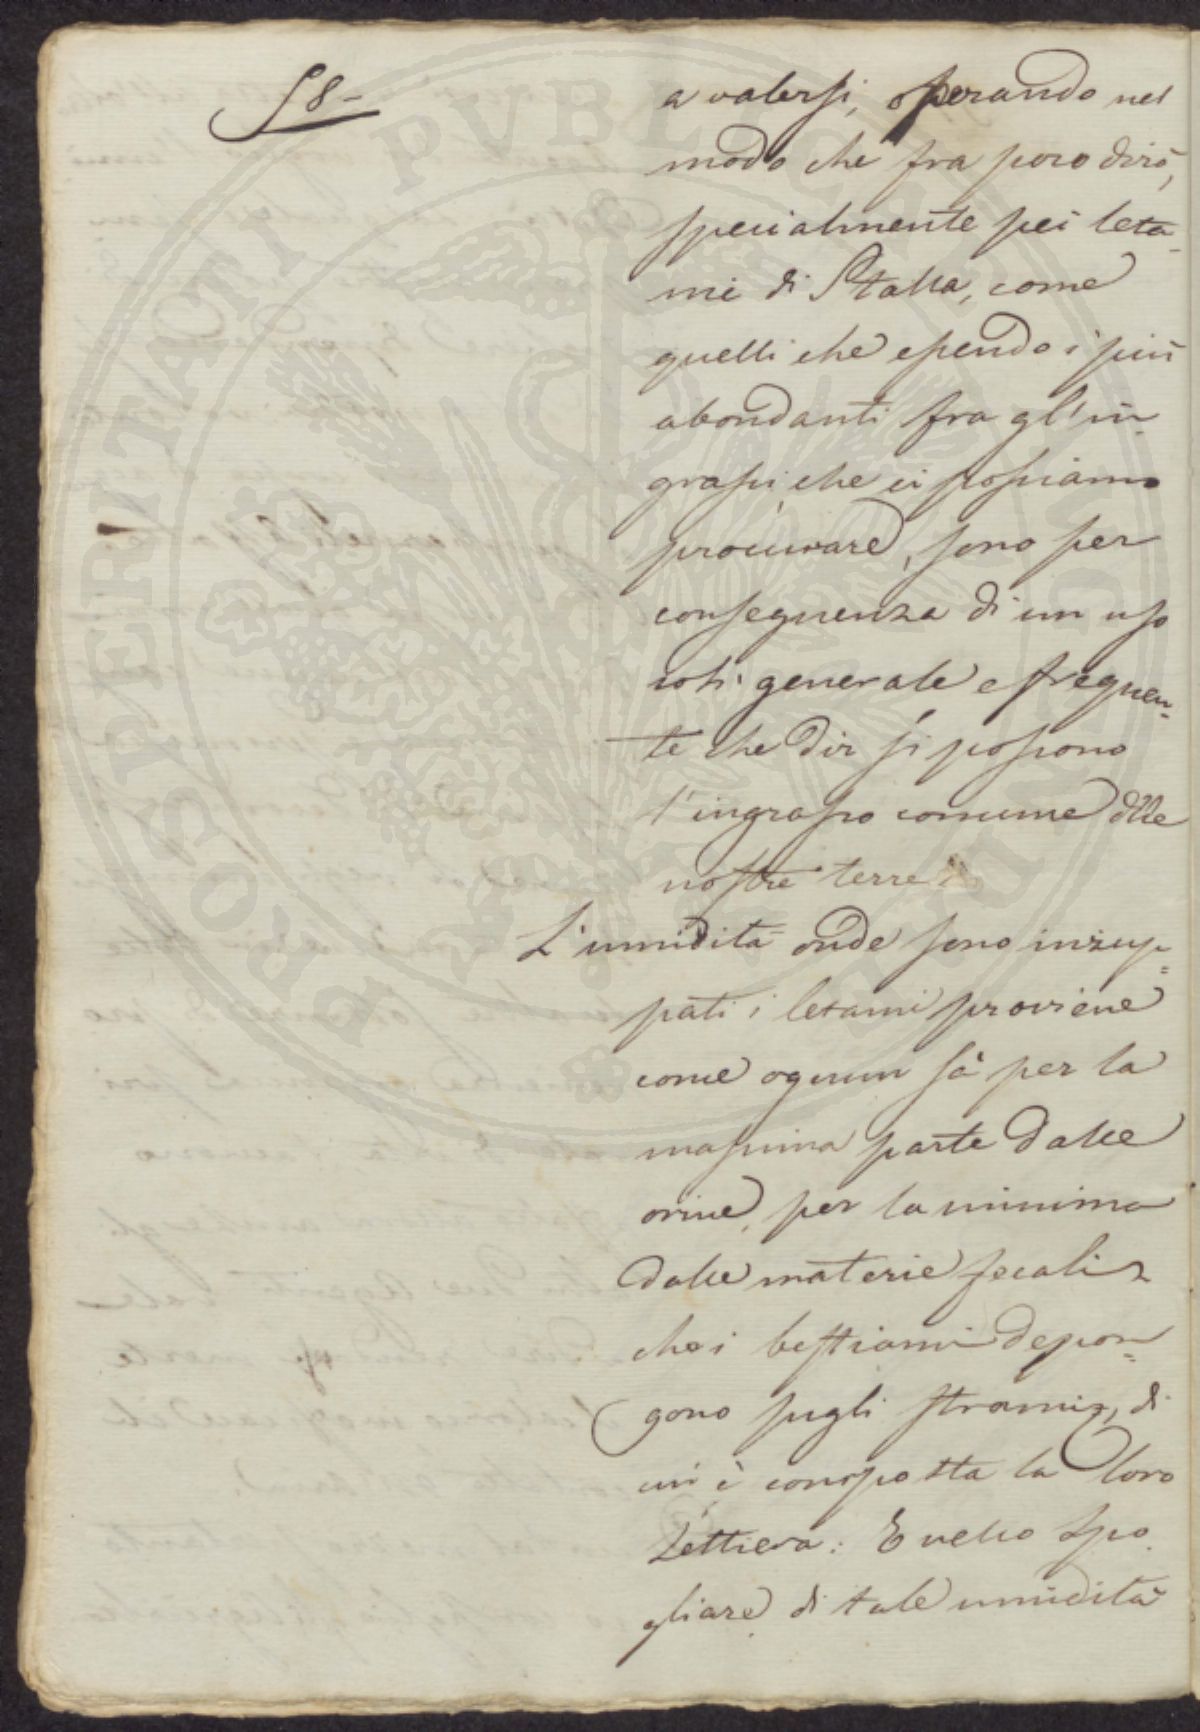 58-
a valersi, operando nel
modo che fra poco dirò,
specialmente pei leta-
mi di Stalla, come
quelli che essendo i più
abondanti fra gl'in-
grassi che ci possiamo
procurare, sono per
conseguenza di un uso
così generale e frequen-
te che dir si possono
l'ingrasso comune dlle
nostre terre.
L'umidità onde sono inzup-
pati i letami proviene
come ognun sà per la
massima parte dalle
orine, per la minima
dalle materie fecali
che i bestiami depon-
gono sugli strami, di
cui è composta la loro
Lettiera: E nello spo
gliare di tale umidità
PROSPERITATI PUBLICAE